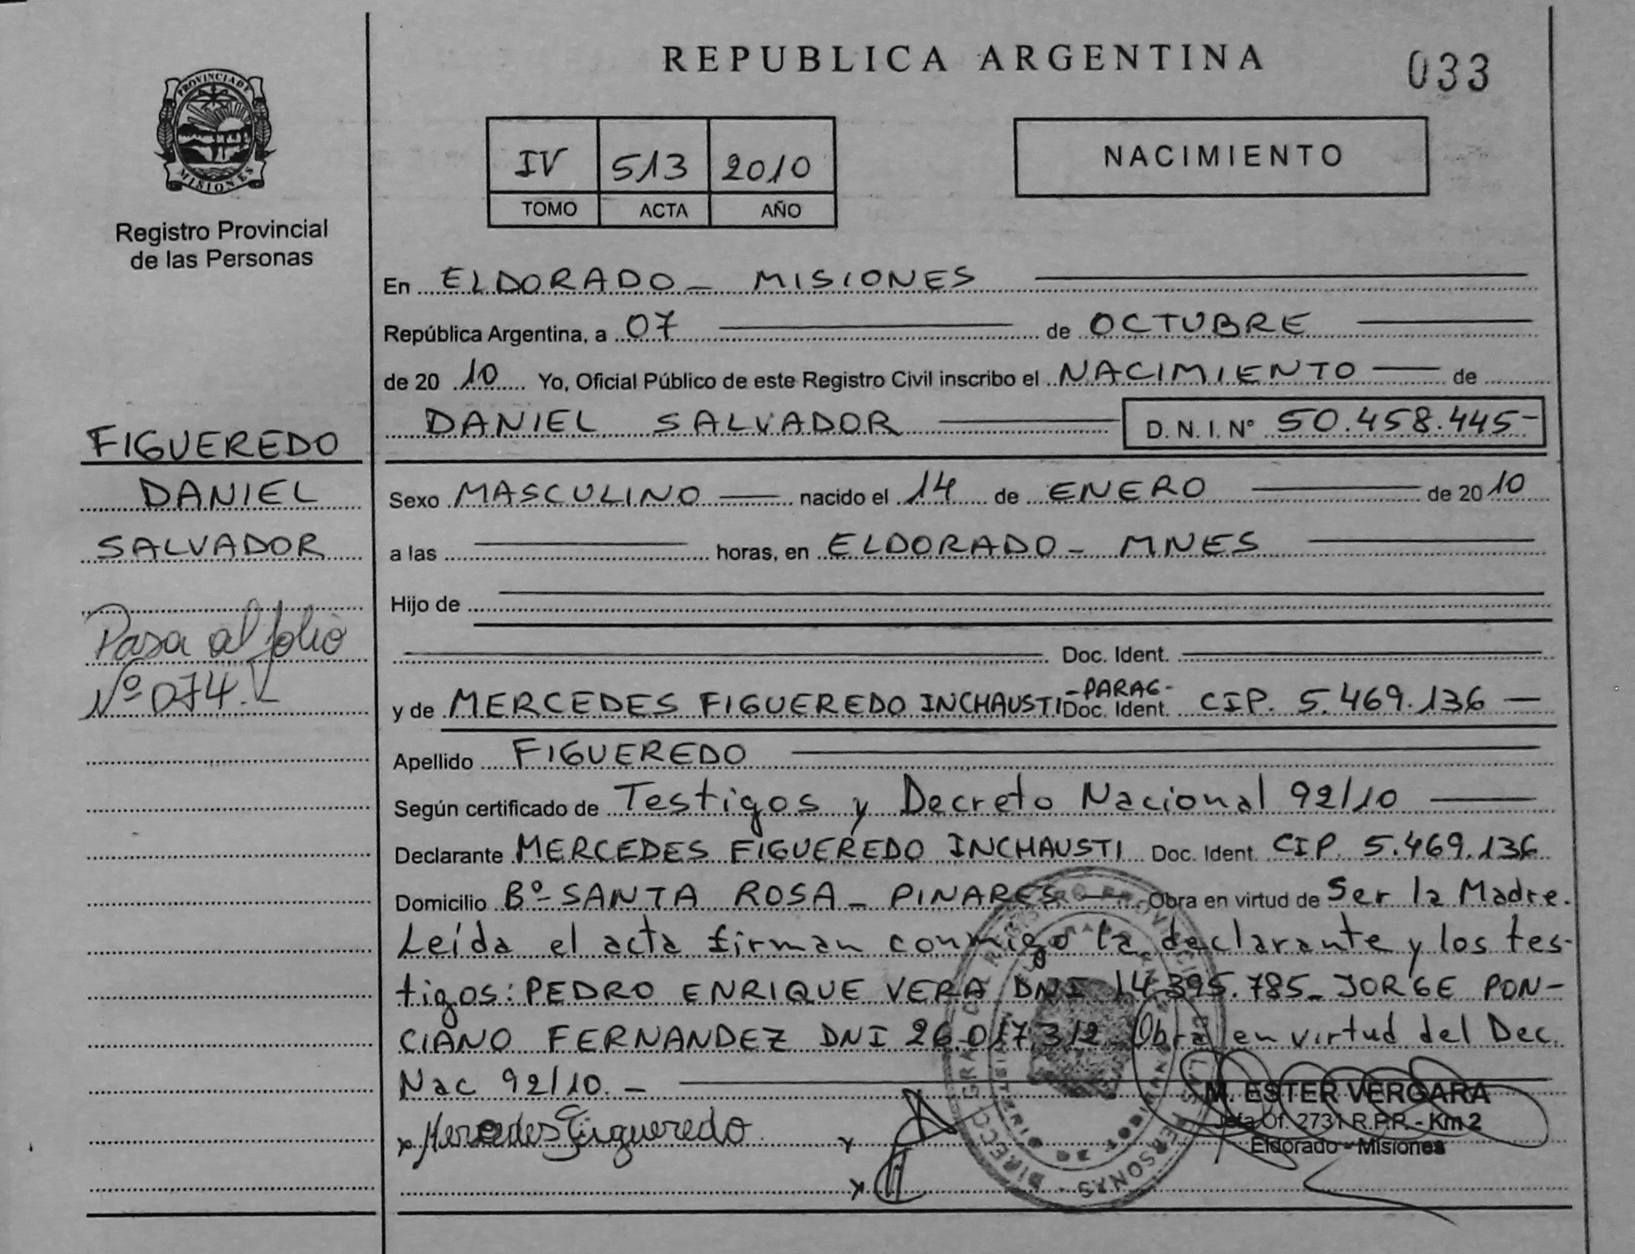 REPUBLICA ARGENTINA
033
PROVINCIA DE
MISIONES
Registro Provincial
de las Personas
IV 513 2010
TOMO ACTA AÑO
NACIMIENTO
En ELDORADO - MISIONES
República Argentina, a 07 de OCTUBRE
de 20 10 Yo, Oficial Público de este Registro Civil inscribo el NACIMIENTO de
DANIEL SALVADOR D. N. I. N° 50.458.445-
FIGUEREDO
DANIEL
SALVADOR
Pasa al folio
Nº 074.
Sexo MASCULINO nacido el 14 de ENERO de 20 10
a las horas, en ELDORADO - MNES
Hijo de
Doc. Ident.
y de MERCEDES FIGUEREDO INCHAUSTI -PARAG- Doc. Ident. CIP. 5.469.136
Apellido FIGUEREDO
Según certificado de Testigos y Decreto Nacional 92/10
Declarante MERCEDES FIGUEREDO INCHAUSTI Doc. Ident CIP 5.469.136
Domicilio Bº SANTA ROSA - PINARES Obra en virtud de Ser la Madre.
Leída el acta firman conmigo la declarante y los tes-
tigos: PEDRO ENRIQUE VERA DNI 14.395.785_ JORGE PON-
CIANO FERNANDEZ DNI 26.017.312 Obra en virtud del Dec.
Nac 92/10. -
x Mercedes Figueredo
x
x
M. ESTER VERGARA
Jefa Of. 2731 R.P.P. - Km 2
Eldorado - Misiones